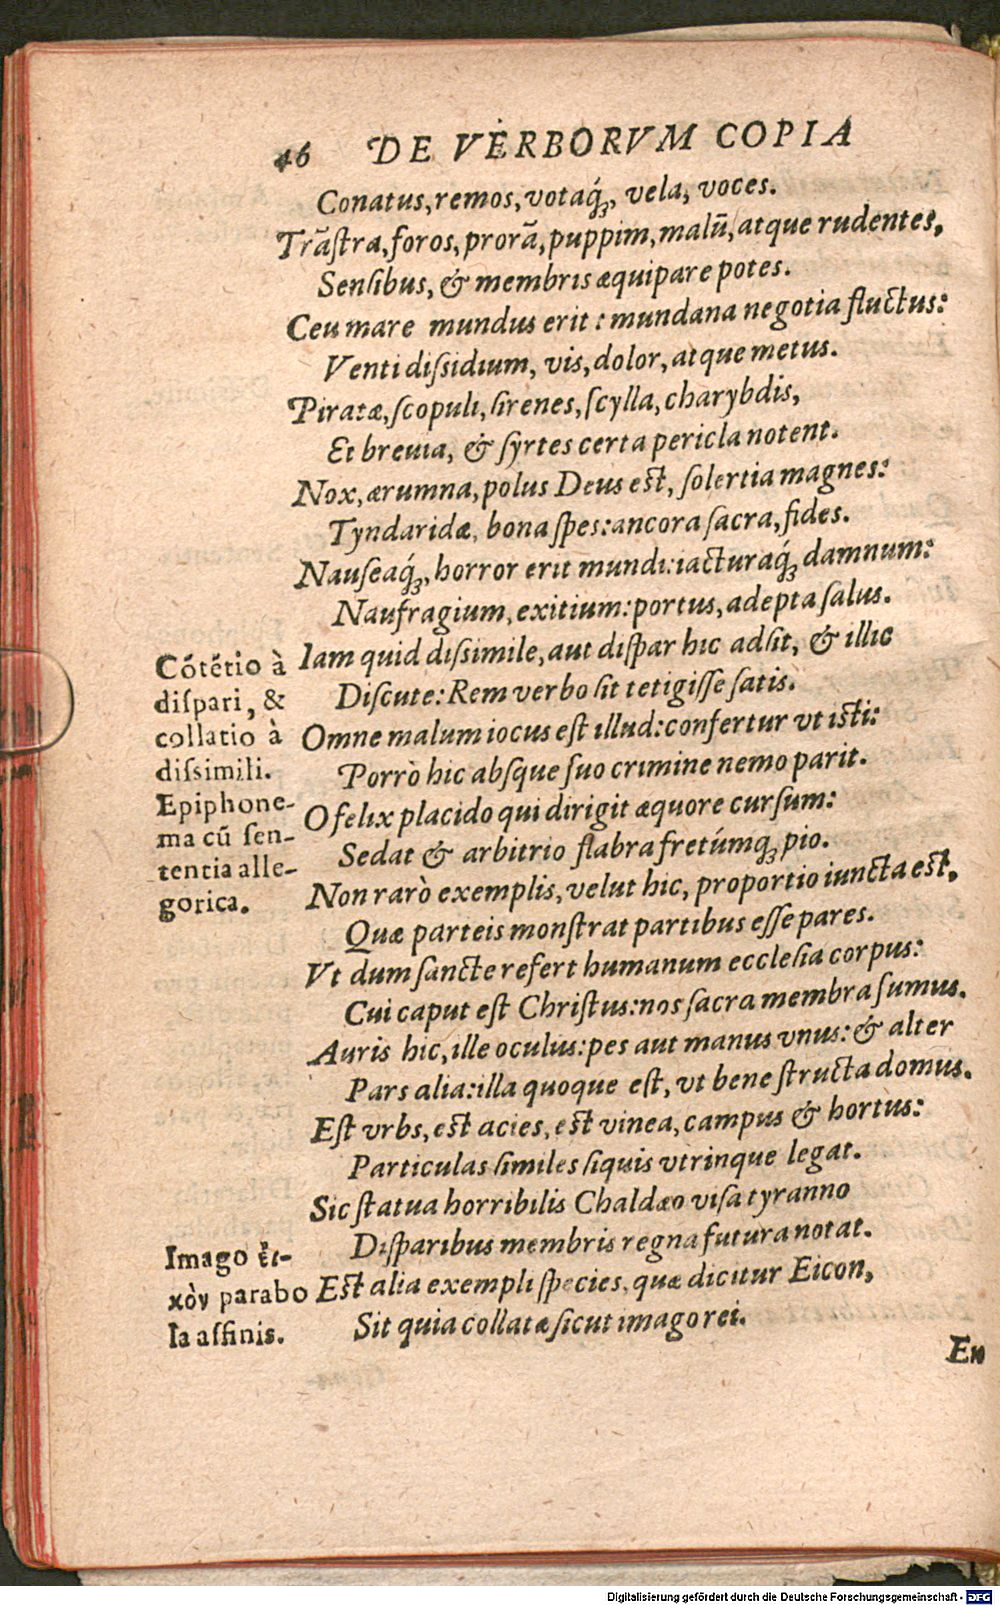 46 DE VERBORVM COPIA
Conatus, remos, votaq́ꝫ, vela, voces.
Trãſtra, foros, prorã, puppim, malũ, atque rudentes,
Senſibus, & membris æquipare potes.
Ceu mare mundus erit: mundana negotia fluctus:
Venti diſsidium, vis, dolor, atque metus.
Piratæ, ſcopuli, ſirenes, ſcylla, charybdis,
Et breuia, & ſyrtes certa pericla notent.
Nox, ærumna, polus Deus eſt, ſolertia magnes:
Tyndaridæ, bona ſpes: ancora ſacra, fides.
Nauſeaq́ꝫ, horror erit mundi: iacturaq́ꝫ damnum:
Naufragium, exitium: portus, adepta ſalus.
Iam quid diſsimile, aut diſpar hic adſit, & illic
Diſcute: Rem verbo ſit tetigiſſe ſatis.
Omne malum iocus eſt illud: confertur vt iſti:
Porrò hic abſque ſuo crimine nemo parit.
O felix placido qui dirigit æquore curſum:
Sedat & arbitrio flabra fretúmqꝫ pio.
Non rarò exemplis, velut hic, proportio iuncta eſt,
Quæ parteis monſtrat partibus eſſe pares.
Vt dum ſancte refert humanum eccleſia corpus:
Cui caput eſt Chriſtus: nos ſacra membra ſumus.
Auris hic, ille oculus: pes aut manus vnus: & alter
Pars alia: illa quoque eſt, vt bene ſtructa domus.
Eſt vrbs, eſt acies, eſt vinea, campus & hortus:
Particulas ſimiles ſiquis vtrinque legat.
Sic ſtatua horribilis Chaldæo viſa tyranno
Diſparibus membris regna futura notat.
Eſt alia exempli ſpecies, quæ dicitur Eicon,
Sit quia collatæ ſicut imago rei.
En
Cõtẽtio à
diſpari, &
collatio à
diſsimili.
Epiphone-
ma cũ ſen-
tentia alle-
gorica.
Imago εἰ-
κὸν parabo
la affinis.
Digitalisierung gefördert durch die Deutsche Forschungsgemeinschaft - DFG